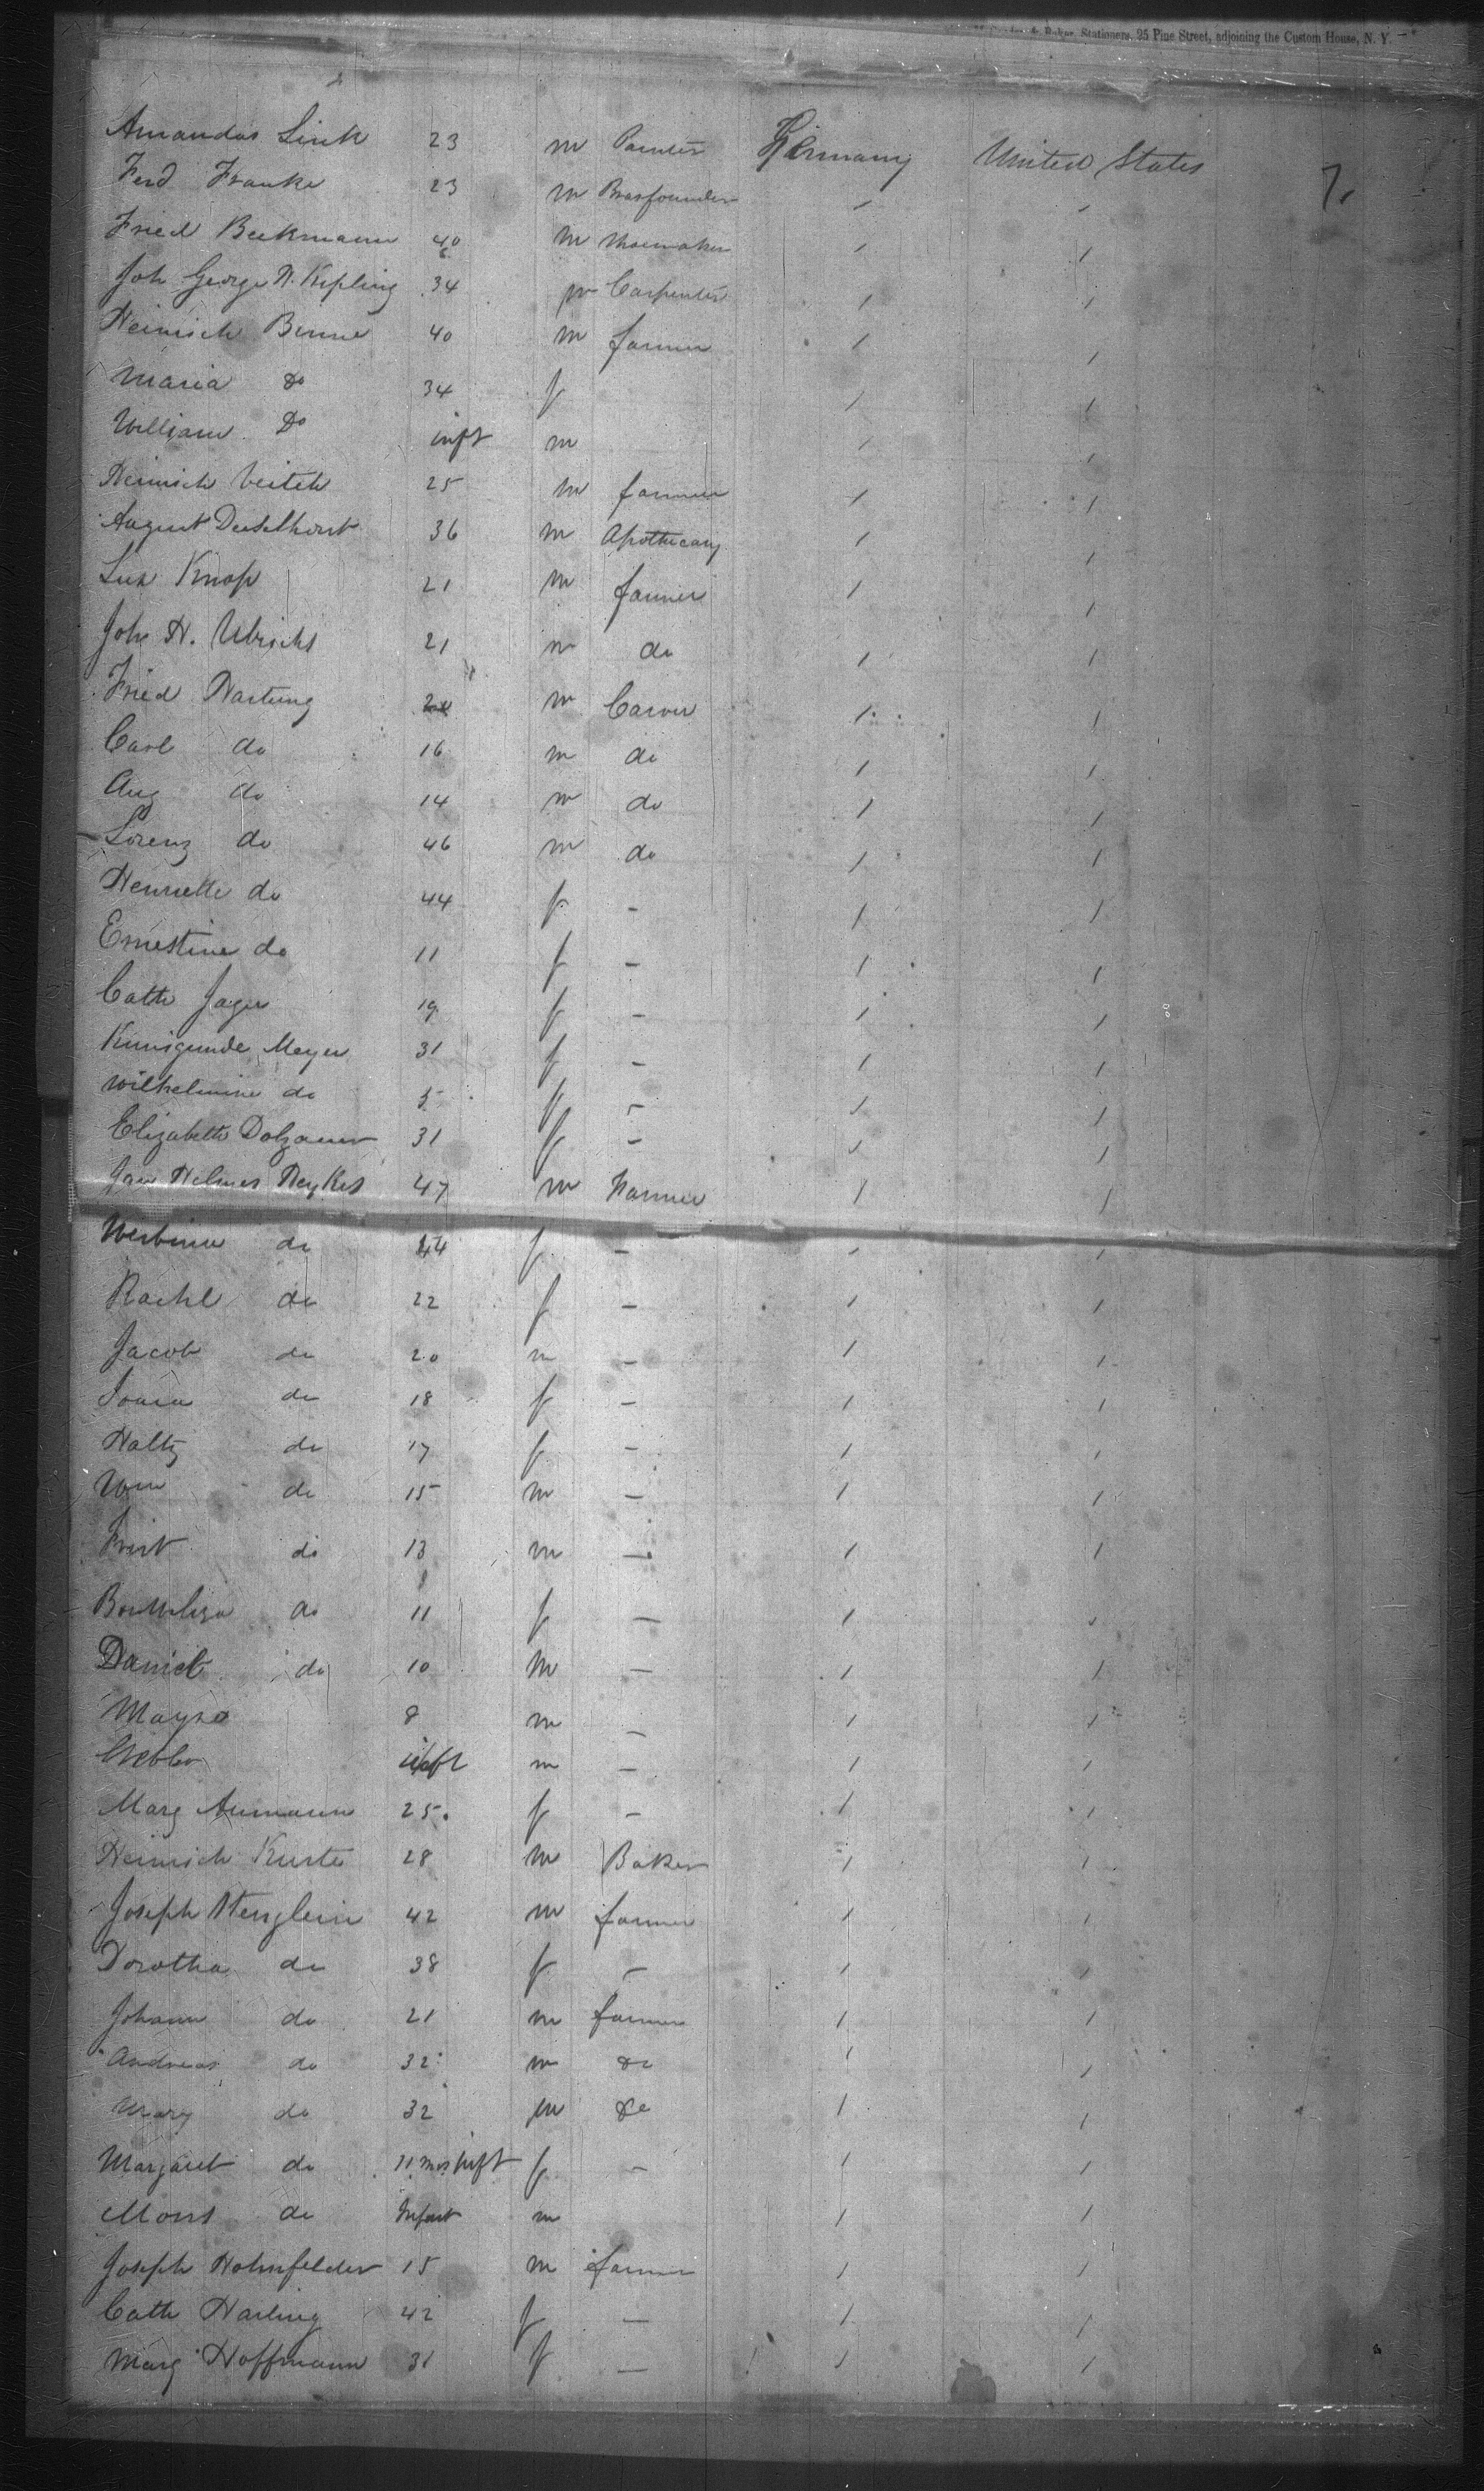 & Baker, Stationers, 95 Pine Street, adjoining the Custom House, N. Y.
Amandas Link 23 m Painter Germany United States
7.
Ferd Franke 23 m Brasfounder / /
Fried Beekmann 40 m Shoemaker / /
Joh George H. Kipling 34 m Carpenter / /
Heinrich Benne 40 m farmer / /
Maria Do 34 f / /
William Do inft m / /
Heinrich Veitch 25 m farmer / /
August Deeselhorst 36 m Apothecary / /
Knop 21 m farmer / /
Joh H. Ulrichs 21 m do / /
Fried Hartung m Carver / /
Carl do 16 m do / /
Aug do 14 m do / /
Lorenz do 46 m do / /
Henriette do 44 f - / /
Ernestine do 11 f - / /
Cath Jager 19 f - / /
Kunigunde Meyer 31 f - / /
Wilhelmine do 5 f - / /
Elizabeth 31 f - / /
Jan Helmer Heykes 47 m Farmer / /
do 44 f - / /
Rachl do 22 f - / /
Jacob do 20 m - / /
do 18 f - / /
do 17 f - / /
Wm do 15 m - / /
do 13 m - / /
do 11 f - / /
Daniel do 10 m - / /
8 m - / /
inft m - / /
Marg Aumann 25 f - / /
Heinrich Kurte 28 m Baker / /
Joseph Stenglein 42 m farmer / /
Dorothea do 38 f - / /
Johann do 21 m farmer / /
Andreas do 32 m do / /
Mary do 32 m do / /
Margaret do 11 mos inft f - / /
do Infant m / /
Joseph Hohnfelder 15 m farmer / /
Cath Harling 42 f - / /
Marg Hoffmann 31 f - / /